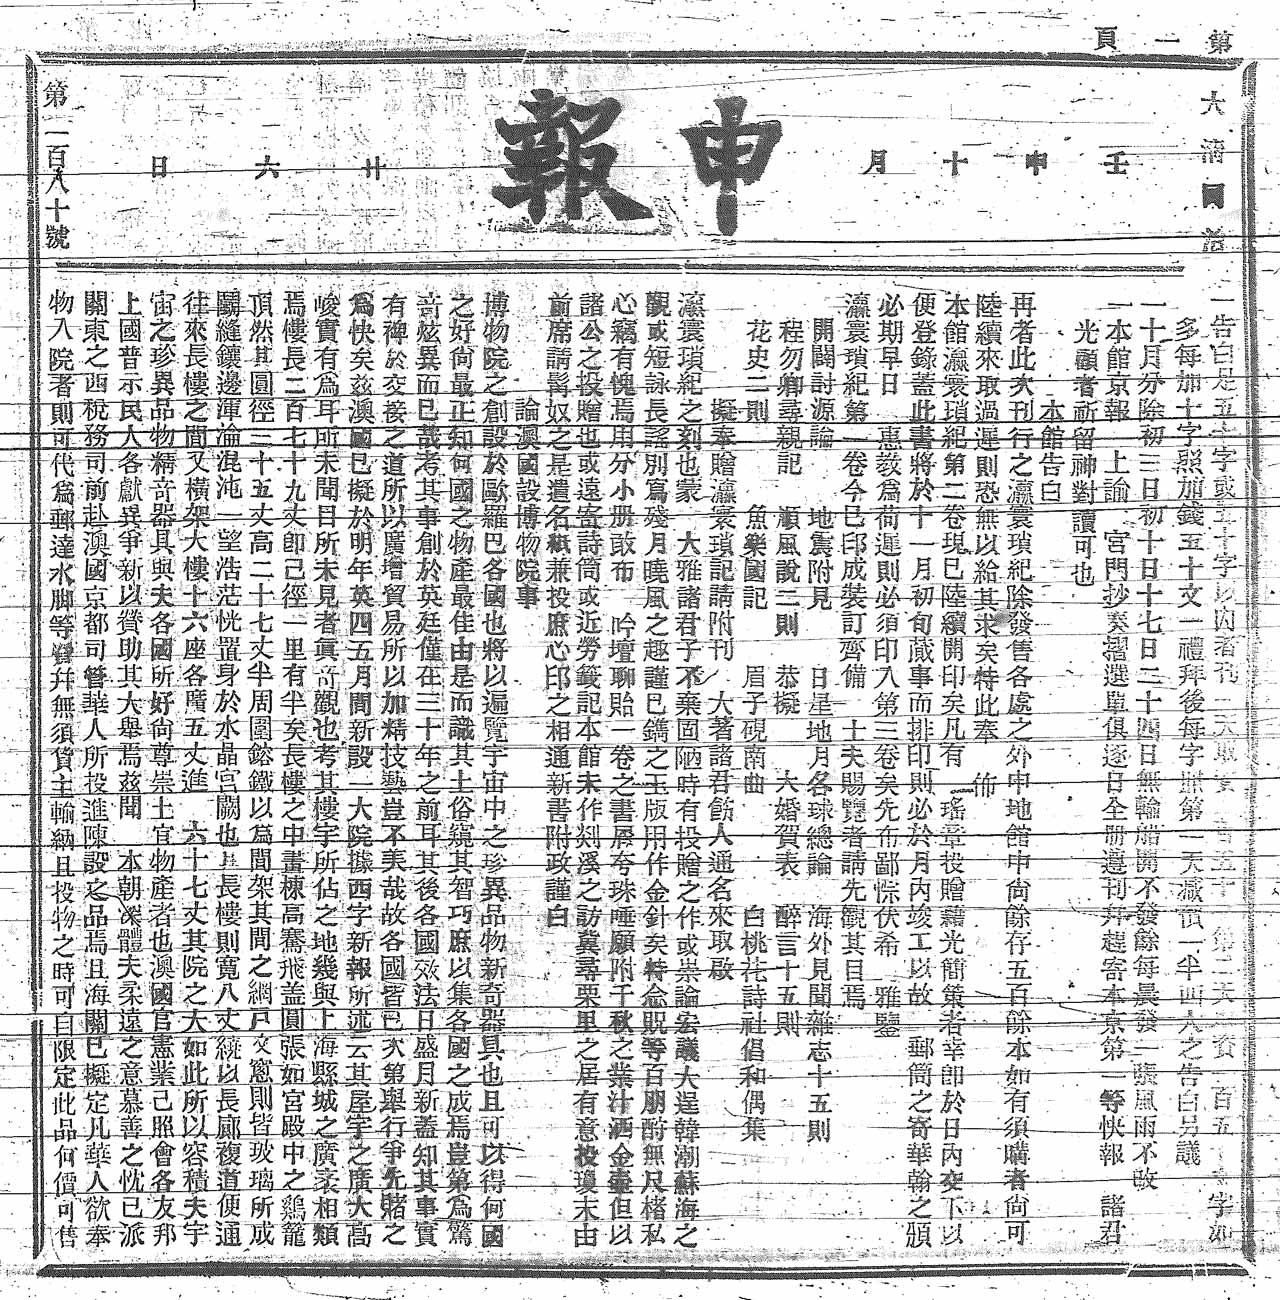 第一頁
大清同治
壬申十月
申報
廿六日
第一百八十號
一告白是五十字或五十字以內者刊一天取
多每加十字照加錢五十文一禮拜後每字照第一天減價一半西人之告白另議
一十月分除初三日初十日十七日二十四日無輪船開不發餘每晨發一張風雨不改
一本館京報 上諭 宮門抄奏摺選單俱逐日全册遵刊幷趕寄本京第一等快報 諸君
光顧者祈留神對讀可也
本館告白
再者此次刊行之瀛寰瑣紀除發售各處之外申地館中尙餘存五百餘本如有須購者尙可
陸續來取過遲則恐無以給其求矣特此奉 佈
本館瀛寰瑣紀第二卷現已陸續開印矣凡有 瑤章投贈藉光簡策者幸卽於日內交下以
便登錄蓋此書將於十一月初旬蕆事而排印則必於月內竣工以故 郵筒之寄華翰之頒
必期早日 惠敎爲荷遲則必須印入第三卷矣先布鄙悰伏希 雅鑒
瀛寰瑣紀第一卷今已印成裝訂齊備 士夫賜覽者請先觀其目焉
開闢討源論 地震附見 日星地月各球總論 海外見聞雜志十五則
程勿卿尋親記 順風說二則 恭擬 大婚賀表 醉言十五則
花史二則 魚樂國記 眉子硯南曲 白桃花詩社倡和偶集
擬奉贈瀛寰瑣記請附刊 大著諸君飭人通名來取啟
瀛寰瑣紀之刻也蒙 大雅諸君子不棄固陋時有投贈之作或崇論宏議大逞韓潮蘇海之
觀或短詠長謠別寫殘月曉風之趣謹已鐫之玉版用作金針矣特念貺等百朋酧無尺楮私
心竊有愧焉用分小册敢布 吟壇聊貽一卷之書層夸珠唾願附千秋之業汁洒金壺但以
諸公之投贈也或遠寄詩筒或近勞籤記本館未作剡溪之訪冀尋栗里之居有意投瓊末由
前席請髯奴之是遣名紙兼投庶心印之相通新書附政謹白
論澳國設博物院事
博物院之創設於歐羅巴各國也將以遍覽宇宙中之珍異品物新奇器具也且可以得何國
之好尙最正知何國之物產最佳由是而識其土俗窺其智巧庶以集各國之成焉豈第爲驚
奇炫異而已哉考其事創於英廷僅在三十年之前耳其後各國效法日盛月新蓋知其事實
有裨於交接之道所以廣增貿易所以加精技藝豈不美哉故各國皆已次第舉行爭先賭之
爲快矣茲澳國已擬於明年英四五月間新設一大院據西字新報所述云其屋宇之廣大高
峻實有爲耳所未聞目所未見者眞奇觀也考其樓宇所佔之地幾與上海縣城之廣袤相類
焉樓長二百七十九丈卽已徑一里有半矣長樓之中畫棟高騫飛蓋圓張如宮殿中之鷄籠
頂然其圓徑三十五丈高二十七丈半周圍鎔鐵以爲間架其間之網戶文窻則皆玻璃所成
鬬縫鑲邊渾淪混沌一望浩茫恍置身於水晶宮闕也其長樓則寬八丈繞以長廊複道便通
往來長樓之間又橫架大樓十六座各廣五丈進 六十七丈其院之大如此所以容積夫宇
宙之珍異品物精奇器具與夫各國所好尙尊崇土官物產者也澳國官憲業已照會各友邦
上國普示民人各獻異爭新以贊助其大舉焉茲聞 本朝深體夫柔遠之意慕善之忱已派
關東之西稅務司前赴澳國京都司管華人所投進陳設之品焉且海關已擬定凡華人欲奉
物入院者則可代爲郵達水脚等費幷無須貨主輸納且投物之時可自限定此品何價可售